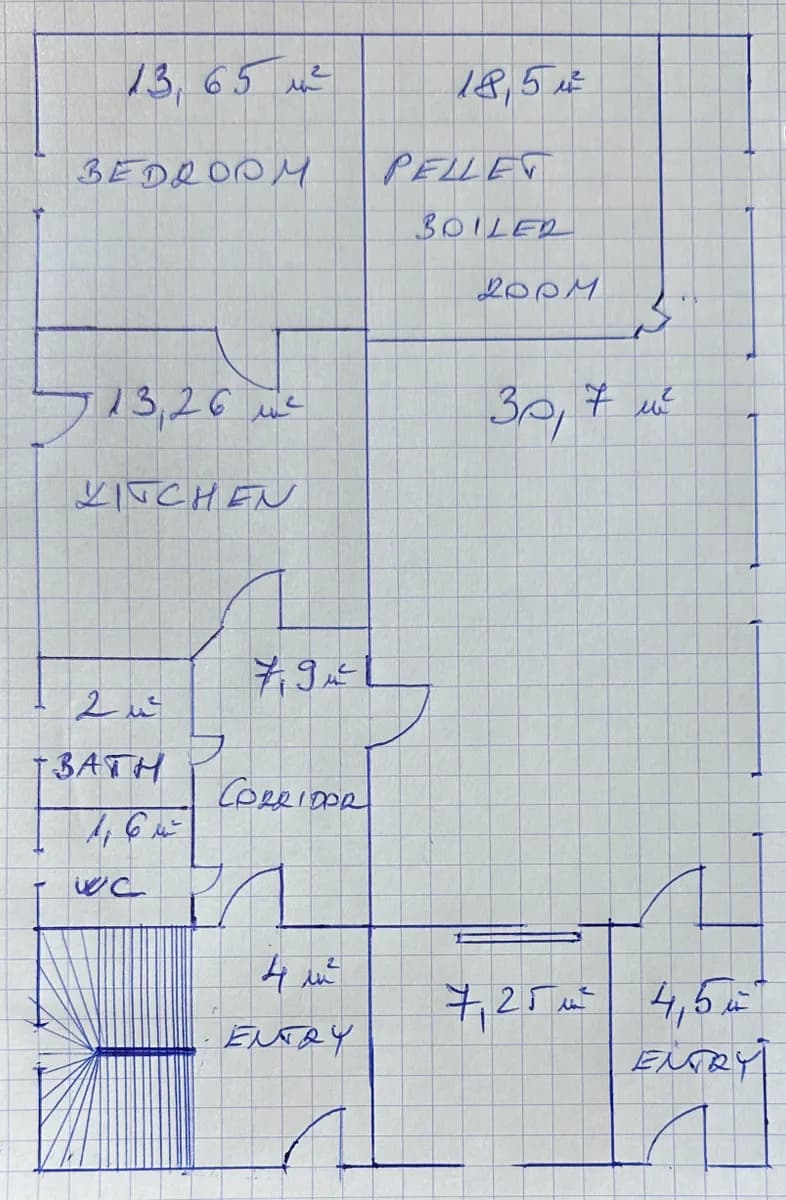 13,65 m²
BEDROOM
18,5 m²
PELLET
BOILER
ROOM
13,26 m²
KITCHEN
30,7 m²
7,9 m²
CORRIDOR
2 m²
BATH
1,6 m²
WC
4 m²
ENTRY
7,25 m²
4,5 m²
ENTRY